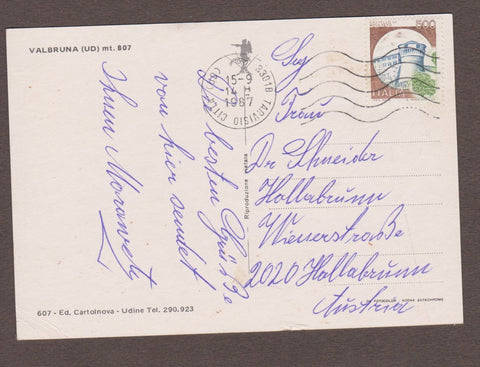 VALBRUNA (UD) mt. 807
500
ITALIA
33018 TARVISIO CITTÀ
15-9
1987
Die besten Grüße
von hier sendet
Ihnen
Riproduzione vietata
Frau
Dr Schneider
Hollabrunn
Wienerstraße
2020 Hollabrunn
Austria
607 - Ed. Cartolnova - Udine Tel. 290.923